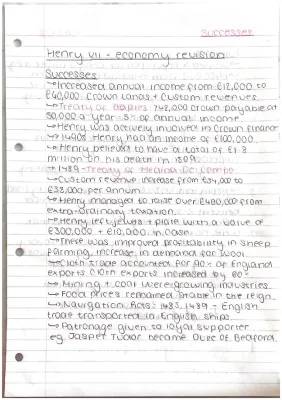 Successes
Henry VII - economy revision
Successes
→ Increased annual income from £12,000 to
£40,000. Crown Lands + Custom revenues.
→ Treaty of Etaples 745,000 crown payable at
50,000 a year - 5% of annual income
→ Henry was actively involved in Crown finance
→ 1490s Henry had an income of £100,000.
→ Henry believed to have a total of £1.8
million on his death in 1509.
→ 1489 - Treaty of Medina Del Campo
→ Custom revenue increase from £34,00 to
£38,000 per annum
→ Henry managed to raise over £400,000 from
extra-ordinary taxation.
→ Henry left jewels + plate with a value of
£300,000 + £10,000 in cash.
→ There was improved profitability in sheep
farming, increase in demand for wool.
→ Cloth trade accounted for 90% of England
exports. Cloth exports increased by 60%
→ Mining + coal were growing industries.
→ Food prices remained stable in the reign.
→ Navigation Acts: 1485, 1489 - English
trade transported in English ships.
→ Patronage given to loyal supporter
eg. Jasper Tudor became Duke of Bedford.